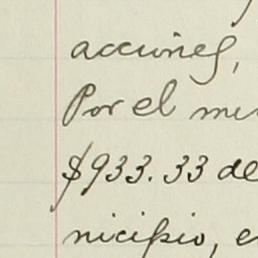 acciones,
Por el
$933.33 de
nicipio, e